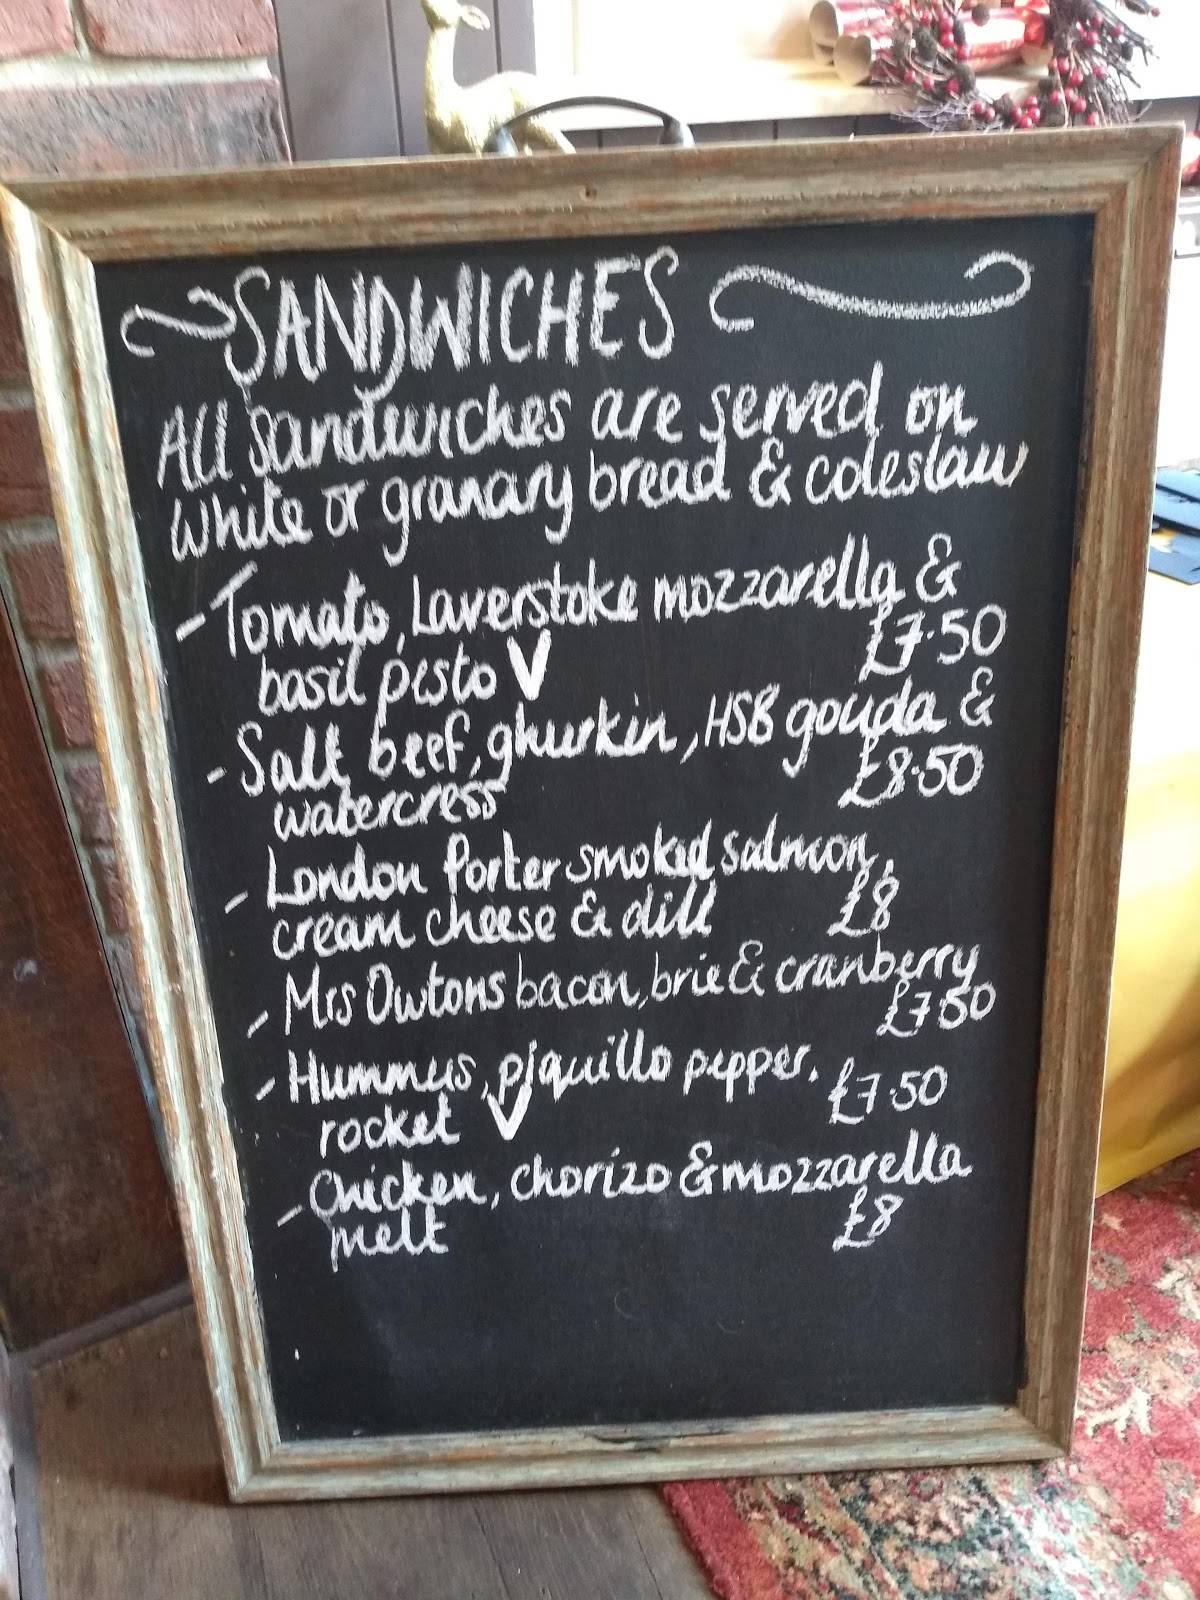 SANDWICHES
All sandwiches are served on
white or granary bread & coleslaw
- Tomato, Laverstoke mozzarella &
basil pesto V £7.50
- Salt beef, ghurkin, HSB gouda &
watercress £8.50
- London Porter smoked salmon,
cream cheese & dill £8
- Mrs Owtons bacon, brie & cranberry
£7.50
- Hummus, piquillo pepper, £7.50
rocket V
- Chicken, chorizo & mozzarella
melt £8